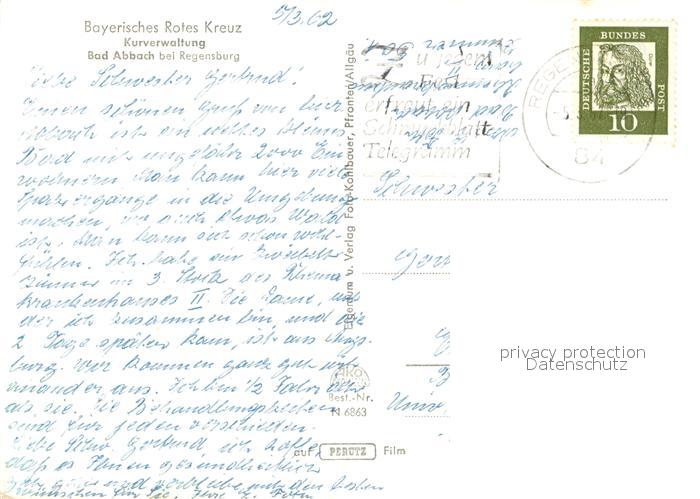 5/3.62
Bayerisches Rotes Kreuz
Kurverwaltung
Bad Abbach bei Regensburg
Liebe Schwester Gertrud!
Einen schönen Gruß von hier
Abbach ist ein nettes kleines
Bad mit ungefähr 2000 Ein
wohnern. Man kann hier viele
Spaziergänge in die Umgebung
machen, wo auch etwas Wald
ist. Man kann sich schon wohl-
fühlen. Ich habe ein Zweibett
zimmer im 3. Stock des Rheuma
krankenhauses II. Die Dame, mit
der ich zusammen bin, und die
2 Tage später kam, ist aus Augs
burg. Wir kommen ganz gut mit
einander aus. Ich bin 12 Jahre
als sie. Die Behandlungszeiten
sind für jeden verschieden.
Liebe Schw. Gertrud ich hoffe,
daß es Ihnen gesundheitlich
gut geht und verbleibe mit den besten
Wünschen für Sie, Ihre
Eigentum u. Verlag Foto-Kohlbauer, Pfronten/Allgäu
AKO
Best.-Nr.
N 6863
auf PERUTZ Film
zu jedem
Fest
erfreut ein
Schmuckblatt
Telegramm
REGE
84
DEUTSCHE BUNDES POST
Dürer
10
Schwester
Ger
G
B
Univ.
privacy protection
Datenschutz